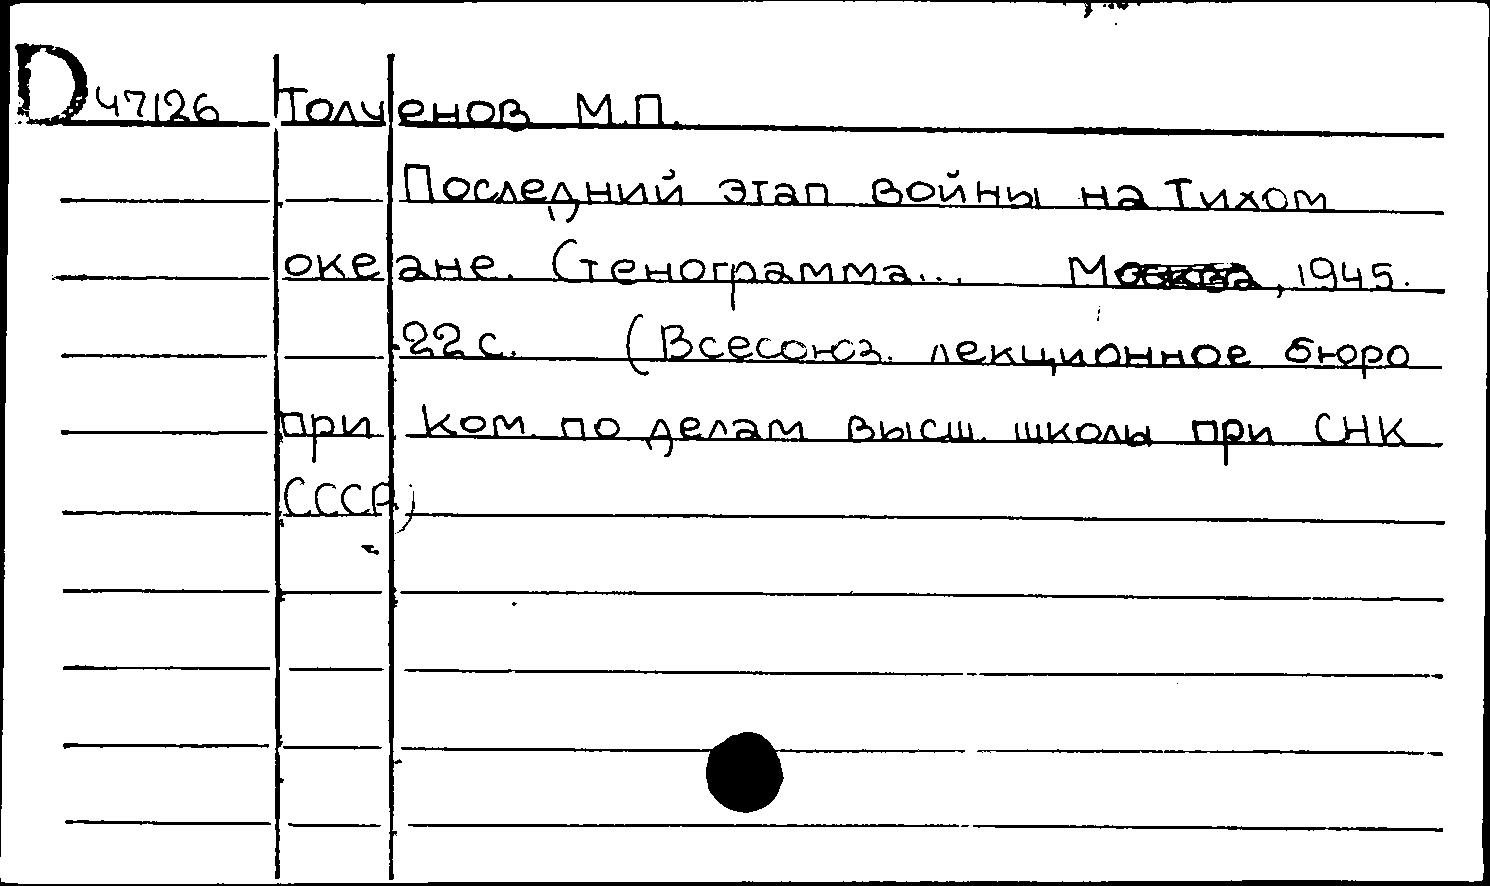 D 47/26 Толченов М.П.
Последний этап войны на Тихом
океане. Стенограмма... М, 1945.
22 с. (Всесоюз. лекционное бюро
при ком. по делам высш. школы при СНК
СССР)